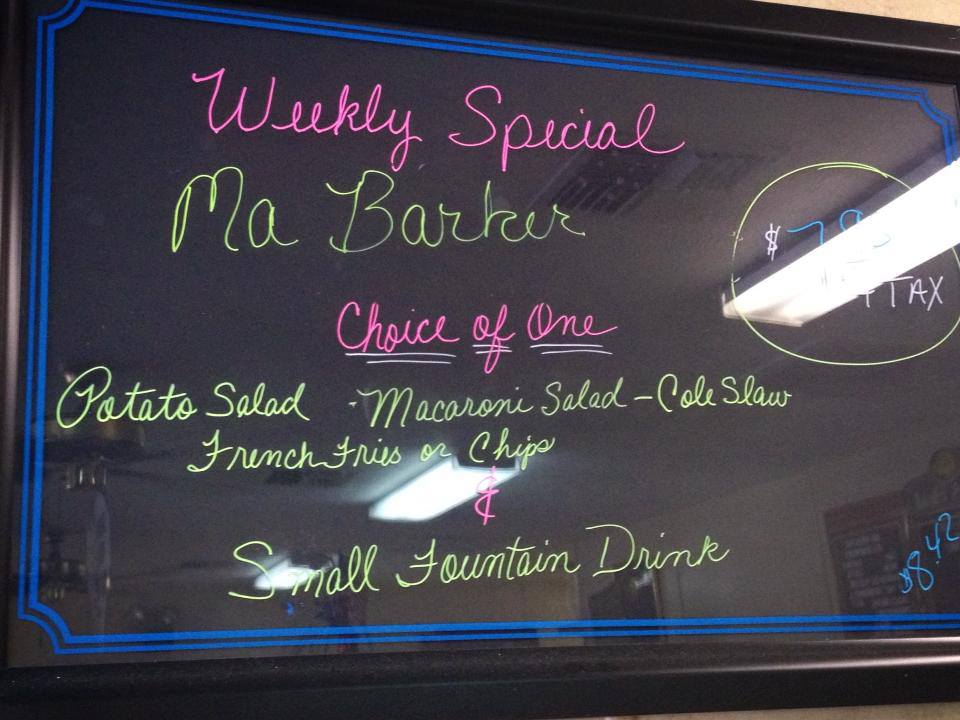 Weekly Special
Ma Barker
+ TAX
Choice of One
Potato Salad - Macaroni Salad - Cole Slaw
French Fries or Chips
&
Small Fountain Drink
$8.42